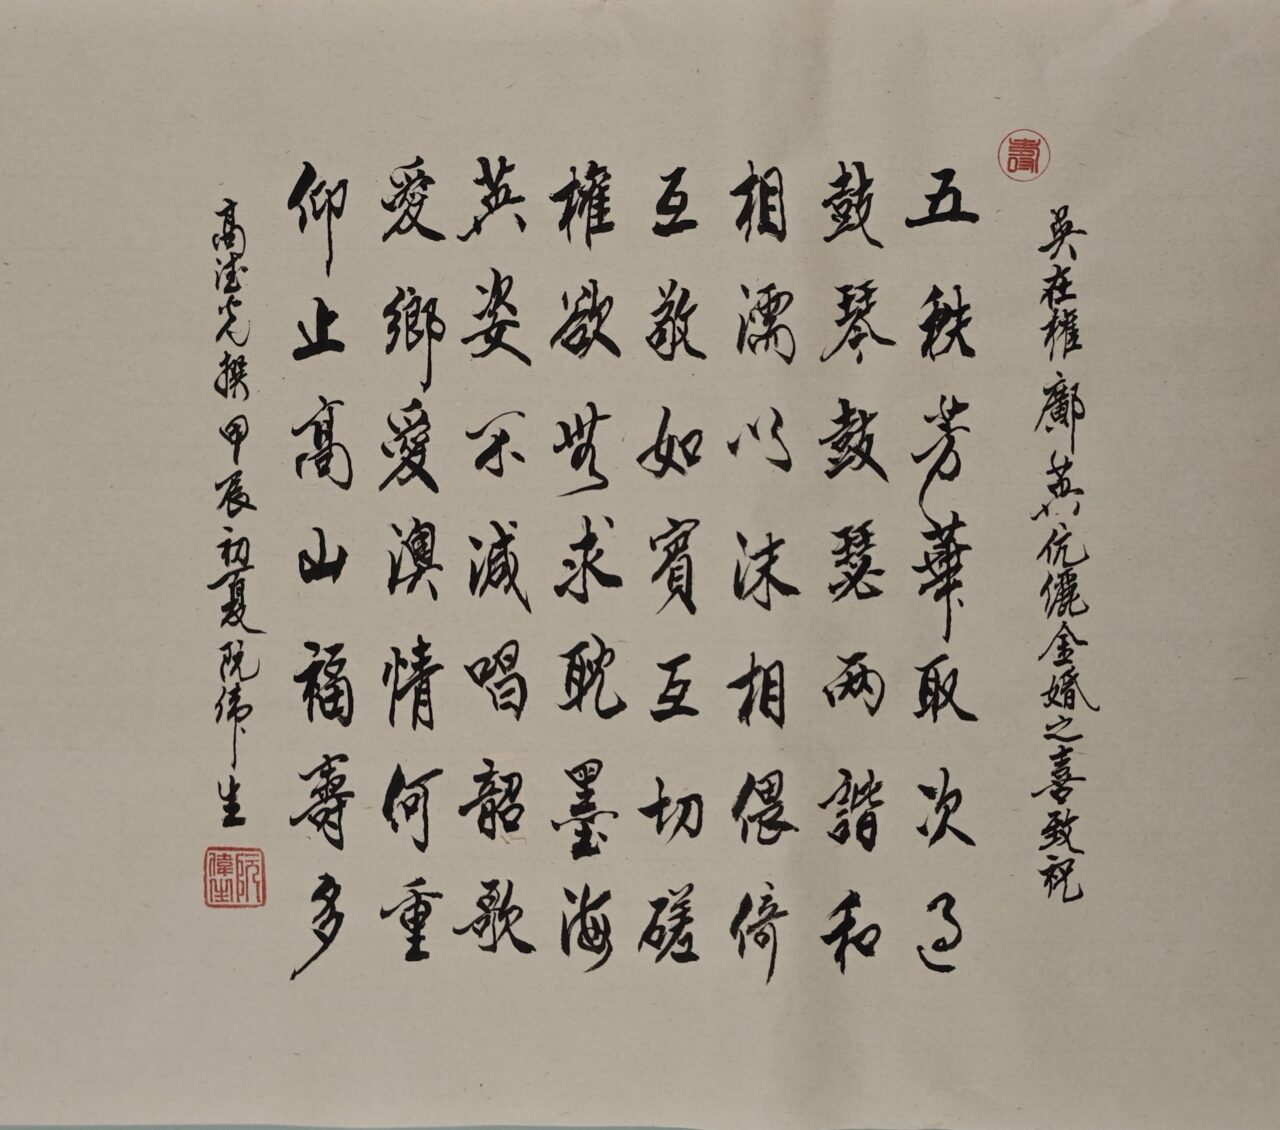 壽
吳在權鄺英伉儷金婚之喜致祝
五秩芳華取次過
鼓琴鼓瑟兩諧和
相濡以沫相偎倚
互敬如賓互切磋
權欲無求耽墨海
英姿不減唱韶歌
愛鄉愛澳情何重
仰止高山福壽多
高達光撰甲辰初夏阮偉生
阮偉生